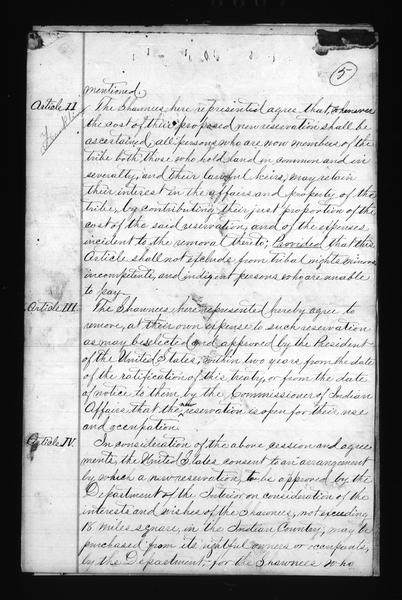 5
mentioned.
Article II The Shawnees here represented agree that, whenever
the cost of their proposed new reservation shall be
ascertained, all persons who are now members of the
tribe both those who hold land in common and in
severalty, and their lawful heirs, may retain
their interest in the affairs and property of the
tribe, by contributing their just proportion of the
cost of the said reservation, and of the expenses
incident to the removal thereto; Provided that this
Article shall not exclude from tribal rights minors
incompetents, and indigent persons who are unable
to pay.
Article III. The Shawnees here represented hereby agree to
remove, at their own expense to such reservation
as may be selected and approved by the President
of the United States, within two years from the date
of the ratification of this treaty, or from the date
of notice to them by the Commissioner of Indian
Affairs that the reservation is open for their use
and occupation.
Article IV. In consideration of the above cession and agree-
ments, the United States consent to an arrangement
by which a new reservation, to be approved by the
Department of the Interior on consideration of the
interests and wishes of the Shawnees, not exceeding
18 miles square, in the Indian Country, may be
purchased from its rightful owners or occupants,
by the Department, for the Shawnees who